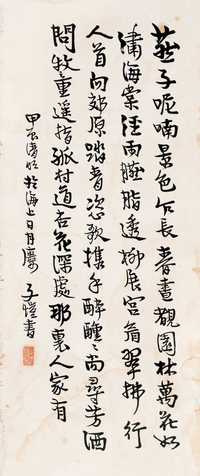 燕子呢喃景色乍長春晝觀園林萬花如
繡海棠經雨臙脂透柳展宮眉翠拂行
人首向郊原踏青恣歌携手醉醺〻尚尋芳酒
問牧童遙指孤村道杏花深處那裏人家有
甲辰清明於海上日月廔 子愷書